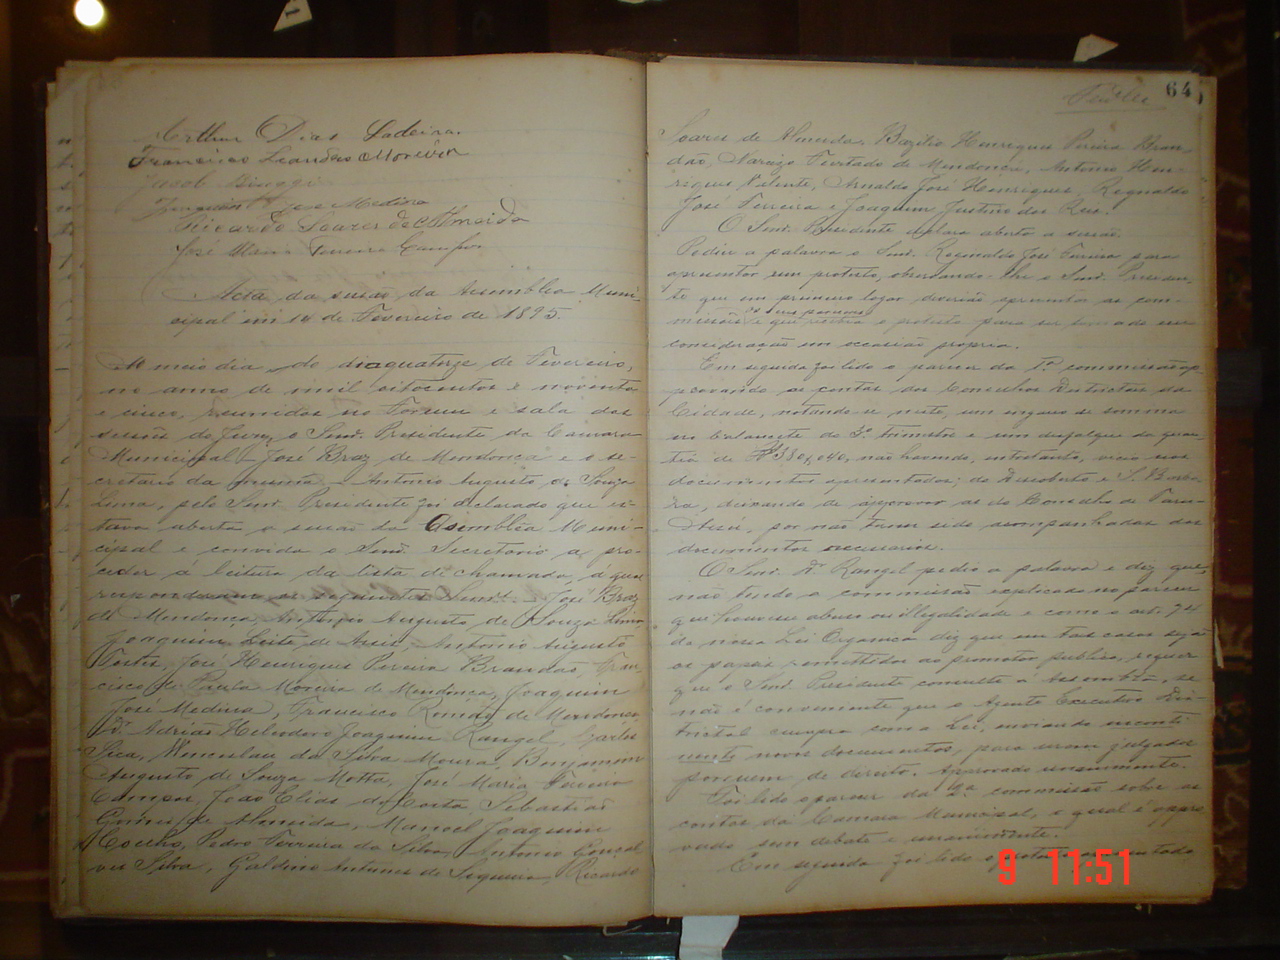 Arthur Dias Ladeira.
Francisco Leandro Moreira
Jacob
Joaquim José Medina
Ricardo Soares de Almeida
José Maria Ferreira Campos
Acta da sessão da Assembléa Muni-
cipal em 14 de Fevereiro de 1895.
Ao meio dia do dia quatorze de Fevereiro,
no anno de mil oitocentos e noventa
e cinco, reunidos no Forum e sala das
sessões do Jury, o Senr. Presidente da Camara
Municipal José Braz de Mendonça e o se-
cretario da mesma Antonio Augusto de Souza
Lima, pelo Senr. Presidente foi declarado que es-
tava aberta a sessão da Assembléa Muni-
cipal e convida o Senr. Secretario a pro-
ceder á leitura da lista de chamada, á qual
responderam os seguintes Senrs. José Braz
de Mendonça, Antonio Augusto de Souza Lima,
Joaquim Leite de Assis, Antonio Augusto
José Henriques Pereira Brandão, Fran-
cisco de Paula Moreira de Mendonça, Joaquim
José Medina, Francisco Romão de Mendonça,
Dr. Adrião Heliodoro Joaquim Rangel, Carlos
Sica, Wenceslau da Silva Moura, Benjamim
Augusto de Souza Motta, José Maria Ferreira
Campos, João Elias da Costa, Sebastião
Gomes de Almeida, Manoel Joaquim
Coelho, Pedro Ferreira da Silva, Antonio Gonçal-
ves Silva, Galdino Antunes de Siqueira, Ricardo
64
Soares de Almeida, Bazilio Henriques Pereira Bran-
dão, Furtado de Mendonça, Antonio Hen-
riques Valente, Arnaldo José Henriques, Reginaldo
José Ferreira e Joaquim Justino dos Reis.
O Senr. Presidente declara aberta a sessão.
Pedio a palavra o Senr. Reginaldo José Ferreira para
apresentar um protesto, observando-lhe o Senr. Presiden-
te que em primeiro logar deverião apresentar as com-
missões os seus pareceres e que o protesto para ser tomado em
consideração em occasião propria.
Em seguida foi lido o parecer da 1ª commissão ap-
provando as contas dos Conselhos Districtaes da
Cidade, notando-se neste, um engano de somma
no balancete do 3º trimestre e um desfalque da quan-
tia de não havendo, entretanto, vicio nos
documentos apresentados; do Descoberto e S. Barba-
ra, deixando de approvar as do Conselho de
Assú, por não terem sido acompanhadas dos
documentos necessarios.
O Senr. Dr. Rangel pedio a palavra e diz que,
não tendo a commissão explicado no parecer
que houvesse abuso ou illegalidade e como o art. 74
da nossa Lei Organica diz que em taes casos sejão
os papeis remettidos ao promotor publico, requer
que o Senr. Presidente consulte á Assembléa, se
não é conveniente que o Agente Executivo Dis-
trictal cumpra com a Lei, enviando inconti-
nente novos documentos, para serem julgados
por quem de direito. Approvado unanimemente.
Foi lido o parecer da 2ª commissão sobre as
contas da Camara Municipal, o qual é appro-
vado sem debate e unanimemente.
Em seguida foi lido o protesto apresentado
9 11:51